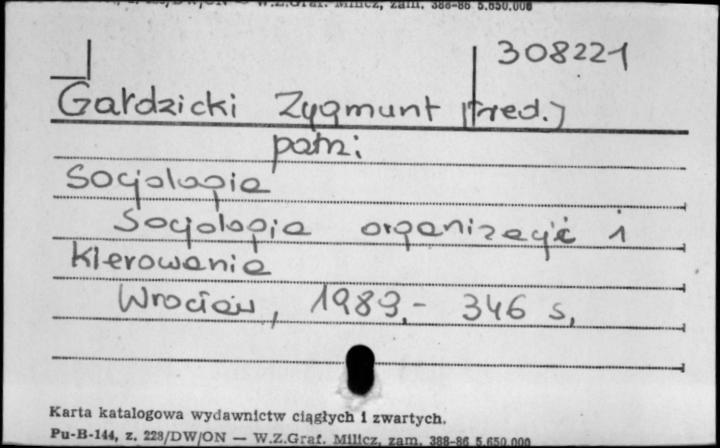 308221
Gałdzicki Zygmunt [red.]
patrz:
Socjologia
Socjologia organizacji i
kierowania
Wrocław, 1983.- 346 s.
Karta katalogowa wydawnictw ciągłych i zwartych.
Pu-B-144, z. 228/DW/ON — W.Z.Graf. Milicz, zam. 388-86 5.650.000